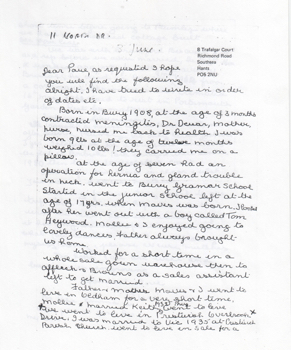 11 March 88.
8 Trafalgar Court
Richmond Road
Southsea
Hants
PO5 2NU
Dear Paul, as requested I hope
you will find the following
alright. I have tried to write in order
of dates etc.
Born in Bury 1908, at the age of 3 months
contracted meningitis, Dr Deuar, Mother
nurse, nursed me back to health I was
born 9lbs at the age of twelve months
weighed 10lbs! they carried me on a
pillow.
At the age of seven had an
operation for hernia and gland trouble
in neck. Went to Bury Gramar School
Started in the junior School left at the
age of 17yrs. when Mavis was born. I looked
after her went out with a boy called Tom
Heywood. Mollie & I enjoyed going to
lovely dances Father always brought
us home.
Worked for a short time in a
wholesale gown warehouse then to
Affleck & Browns as a sales assistant
left to get married.
Father & Mother Mavis & I went to
live in Oldham for a very short time,
Mollie & married Keith went to live
we went to live in Prestwich
Drive. I was married to Vic 1935 at
Parish Church went to live in Sale for a